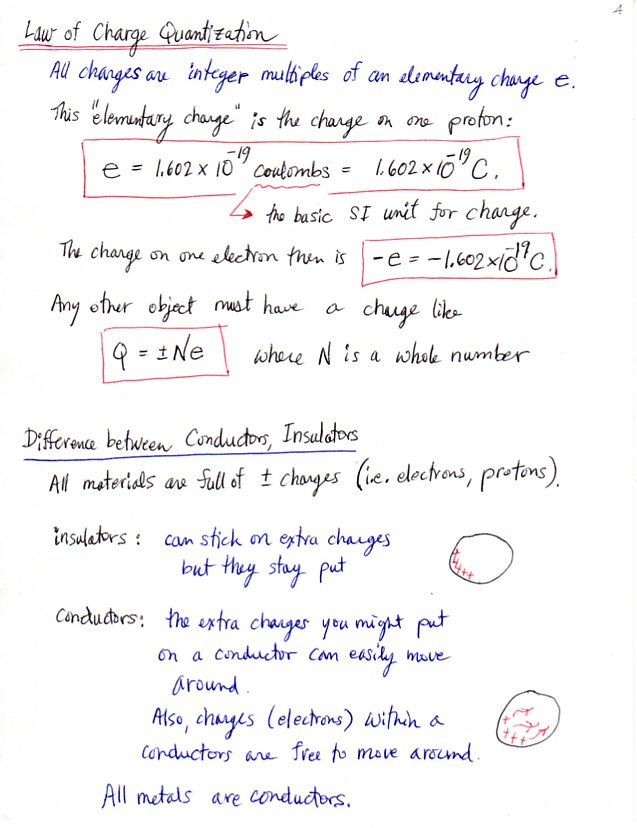 4
Law of Charge Quantization
All charges are integer multiples of an elementary charge e.
This "elementary charge" is the charge on one proton:
e = 1.602 × 10⁻¹⁹ coulombs = 1.602 × 10⁻¹⁹ C.
the basic SI unit for charge.
The charge on one electron then is -e = -1.602 × 10⁻¹⁹ C.
Any other object must have a charge like
Q = ± Ne where N is a whole number
Difference between Conductors, Insulators
All materials are full of ± charges (i.e. electrons, protons).
insulators: can stick on extra charges
but they stay put
++++
conductors: the extra charges you might put
on a conductor can easily move
around.
Also, charges (electrons) within a
conductors are free to move around.
+ + +++
All metals are conductors.